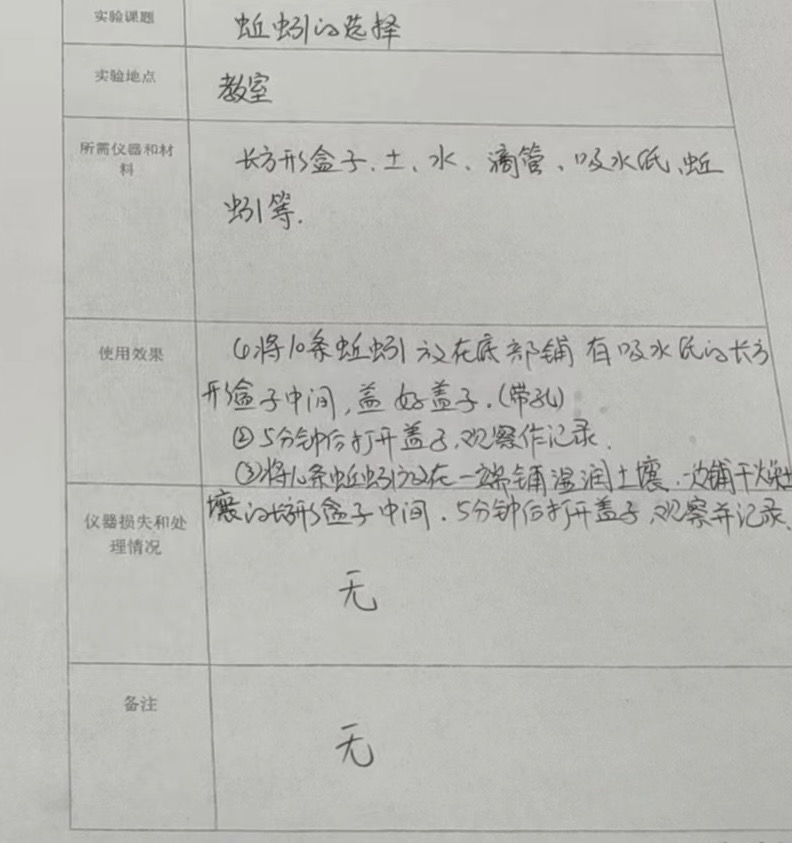 实验课题 蚯蚓的选择
实验地点 教室
所需仪器和材
料
长方形盒子、土、水、滴管、吸水纸、蚯
蚓等.
使用效果
①将10条蚯蚓放在底部铺有吸水纸的长方
形盒子中间,盖好盖子.(带孔)
②5分钟后打开盖子,观察作记录.
③将10条蚯蚓放在一端铺湿润土壤,一边铺干燥土
壤的长方形盒子中间.5分钟后打开盖子,观察并记录.
仪器损失和处
理情况
无
备注
无